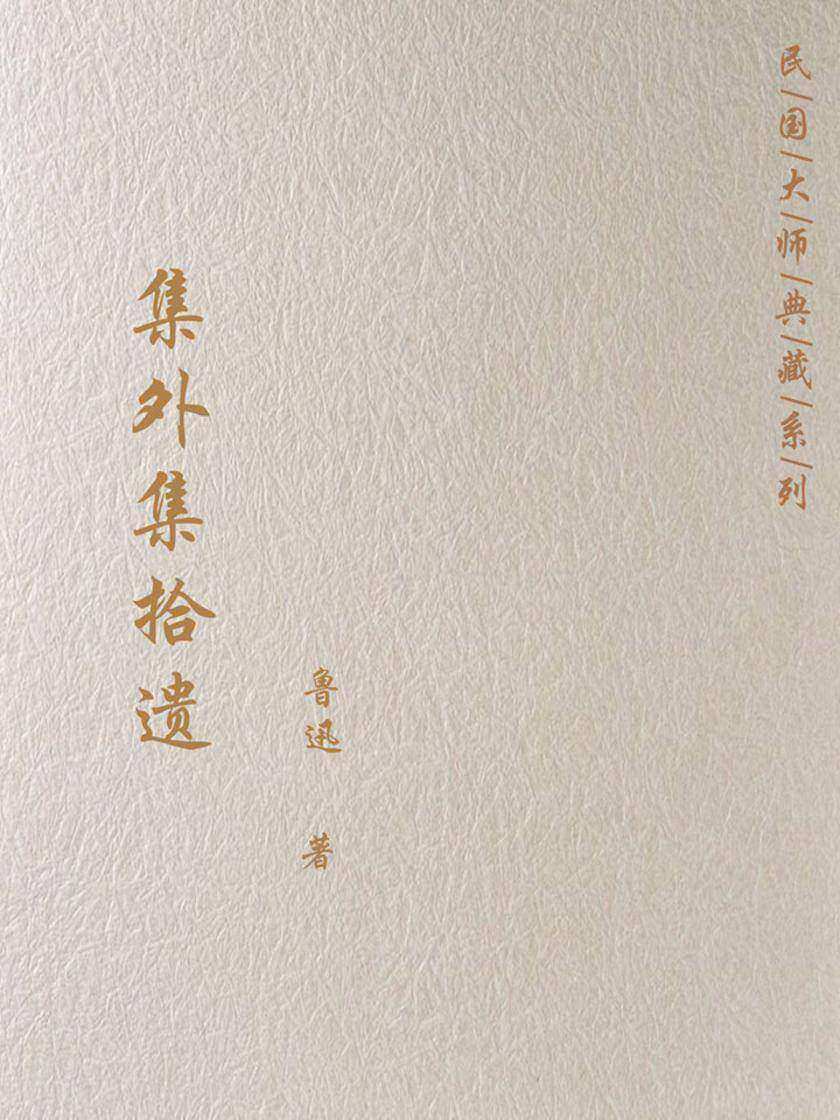 民/国/大/师/典/藏/系/列
集外集拾遗
鲁迅 著